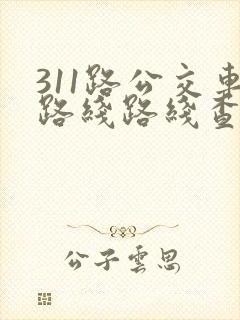 311路公交车
路线路线查
公子云思